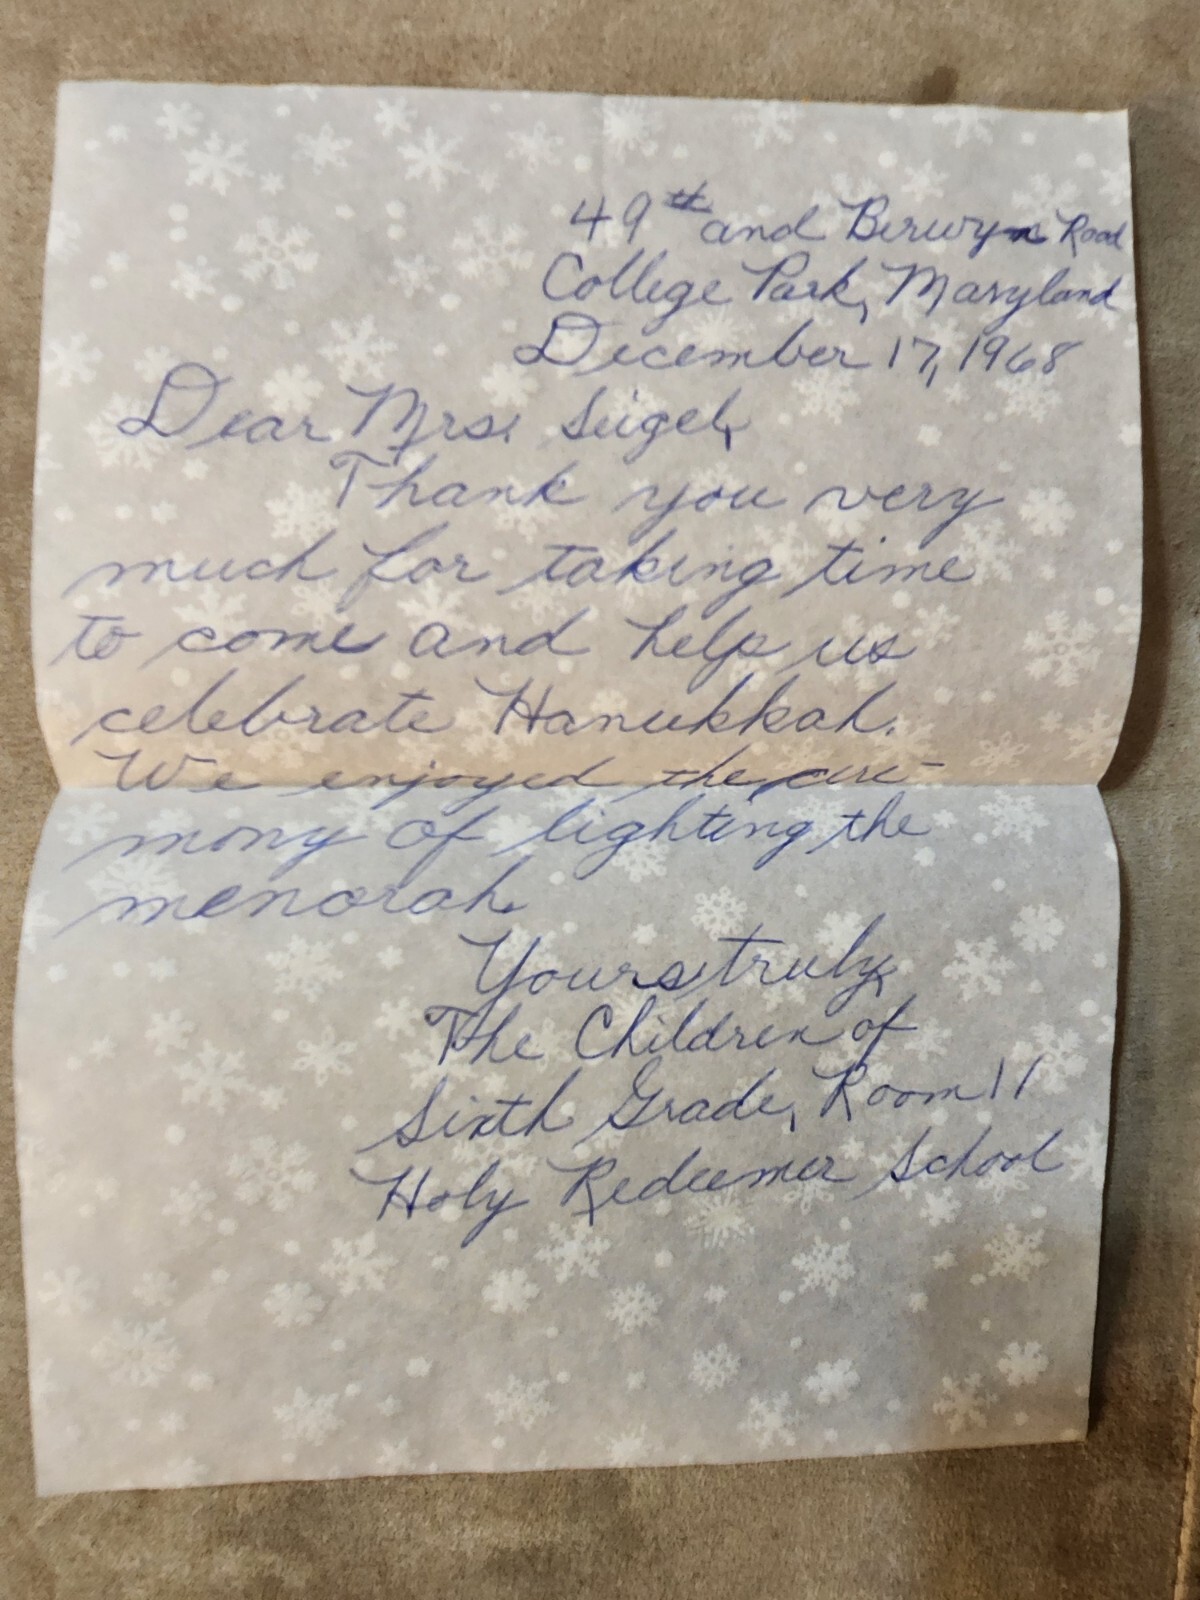 49th and Berwyn Road
College Park, Maryland
December 17, 1968
Dear Mrs. Seigel,
Thank you very
much for taking time
to come and help us
celebrate Hanukkah.
We enjoyed the cere-
mony of lighting the
menorah.
Yours truly,
The Children of
Sixth Grade, Room 11
Holy Redeemer School